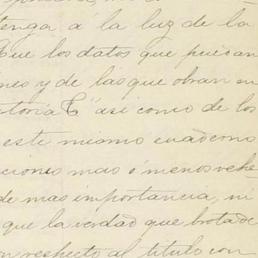 tenga a la luz de la
Que los datos que puedan
nes y de las que obran en
toria E" asi como de los
este mismo cuaderno
ciones mas ó menos vehe
de mas importancia, ni
que la verdad que brota de
n respecto al titulo con